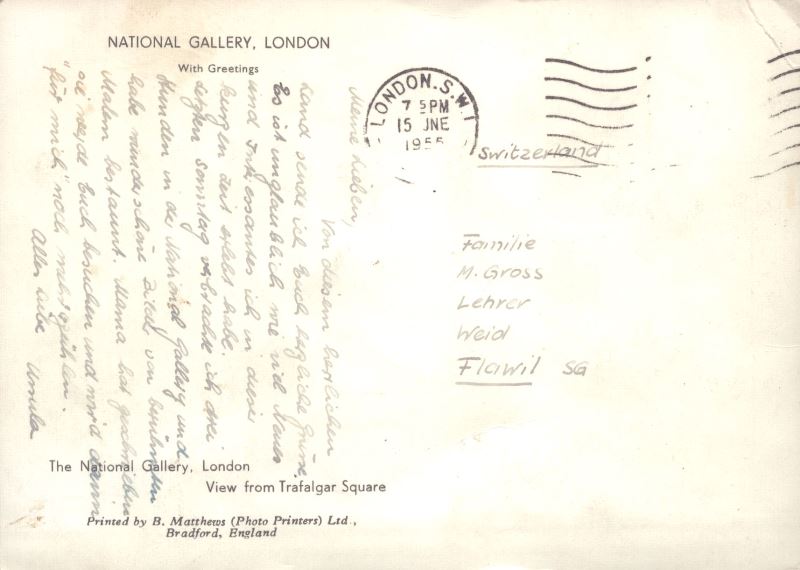 NATIONAL GALLERY, LONDON
With Greetings
Meine Lieben,
Von diesem herrlichen
Land sende ich Euch herzliche Grüsse.
Es ist unglaublich wie viel Neues
und Interessantes ich in dieser
kurzen Zeit erlebt habe.
letzten Sonntag verbrachte ich drei
Stunden in der National Gallery und
habe wunderschöne Bilder von berühmten
Malern bestaunt. Mama hat geschrieben
sie werde Euch besuchen und wird dann
"für mich" noch
Alles Liebe Ursula
LONDON. S.W.1
7 15 PM
15 JNE
1955
Switzerland
Familie
M. Gross
Lehrer
Weid
Flawil SG
The National Gallery, London
View from Trafalgar Square
Printed by B. Matthews (Photo Printers) Ltd.,
Bradford, England